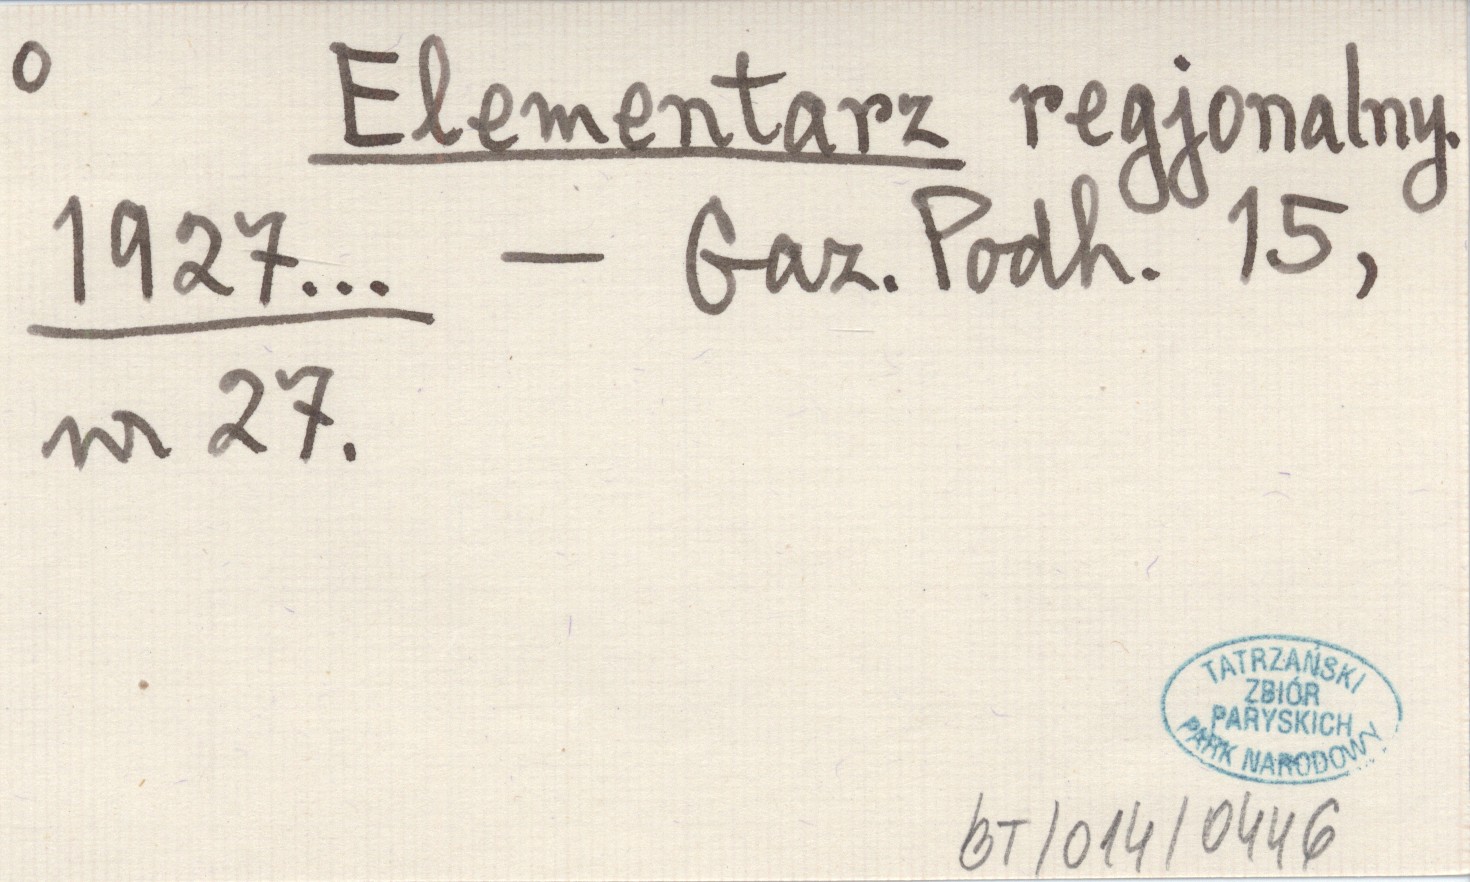 o Elementarz regjonalny.
1927... — Gaz. Podh. 15,
nr 27.
TATRZAŃSKI
ZBIÓR
PARYSKICH
PARK NARODOWY
BT/014/0446